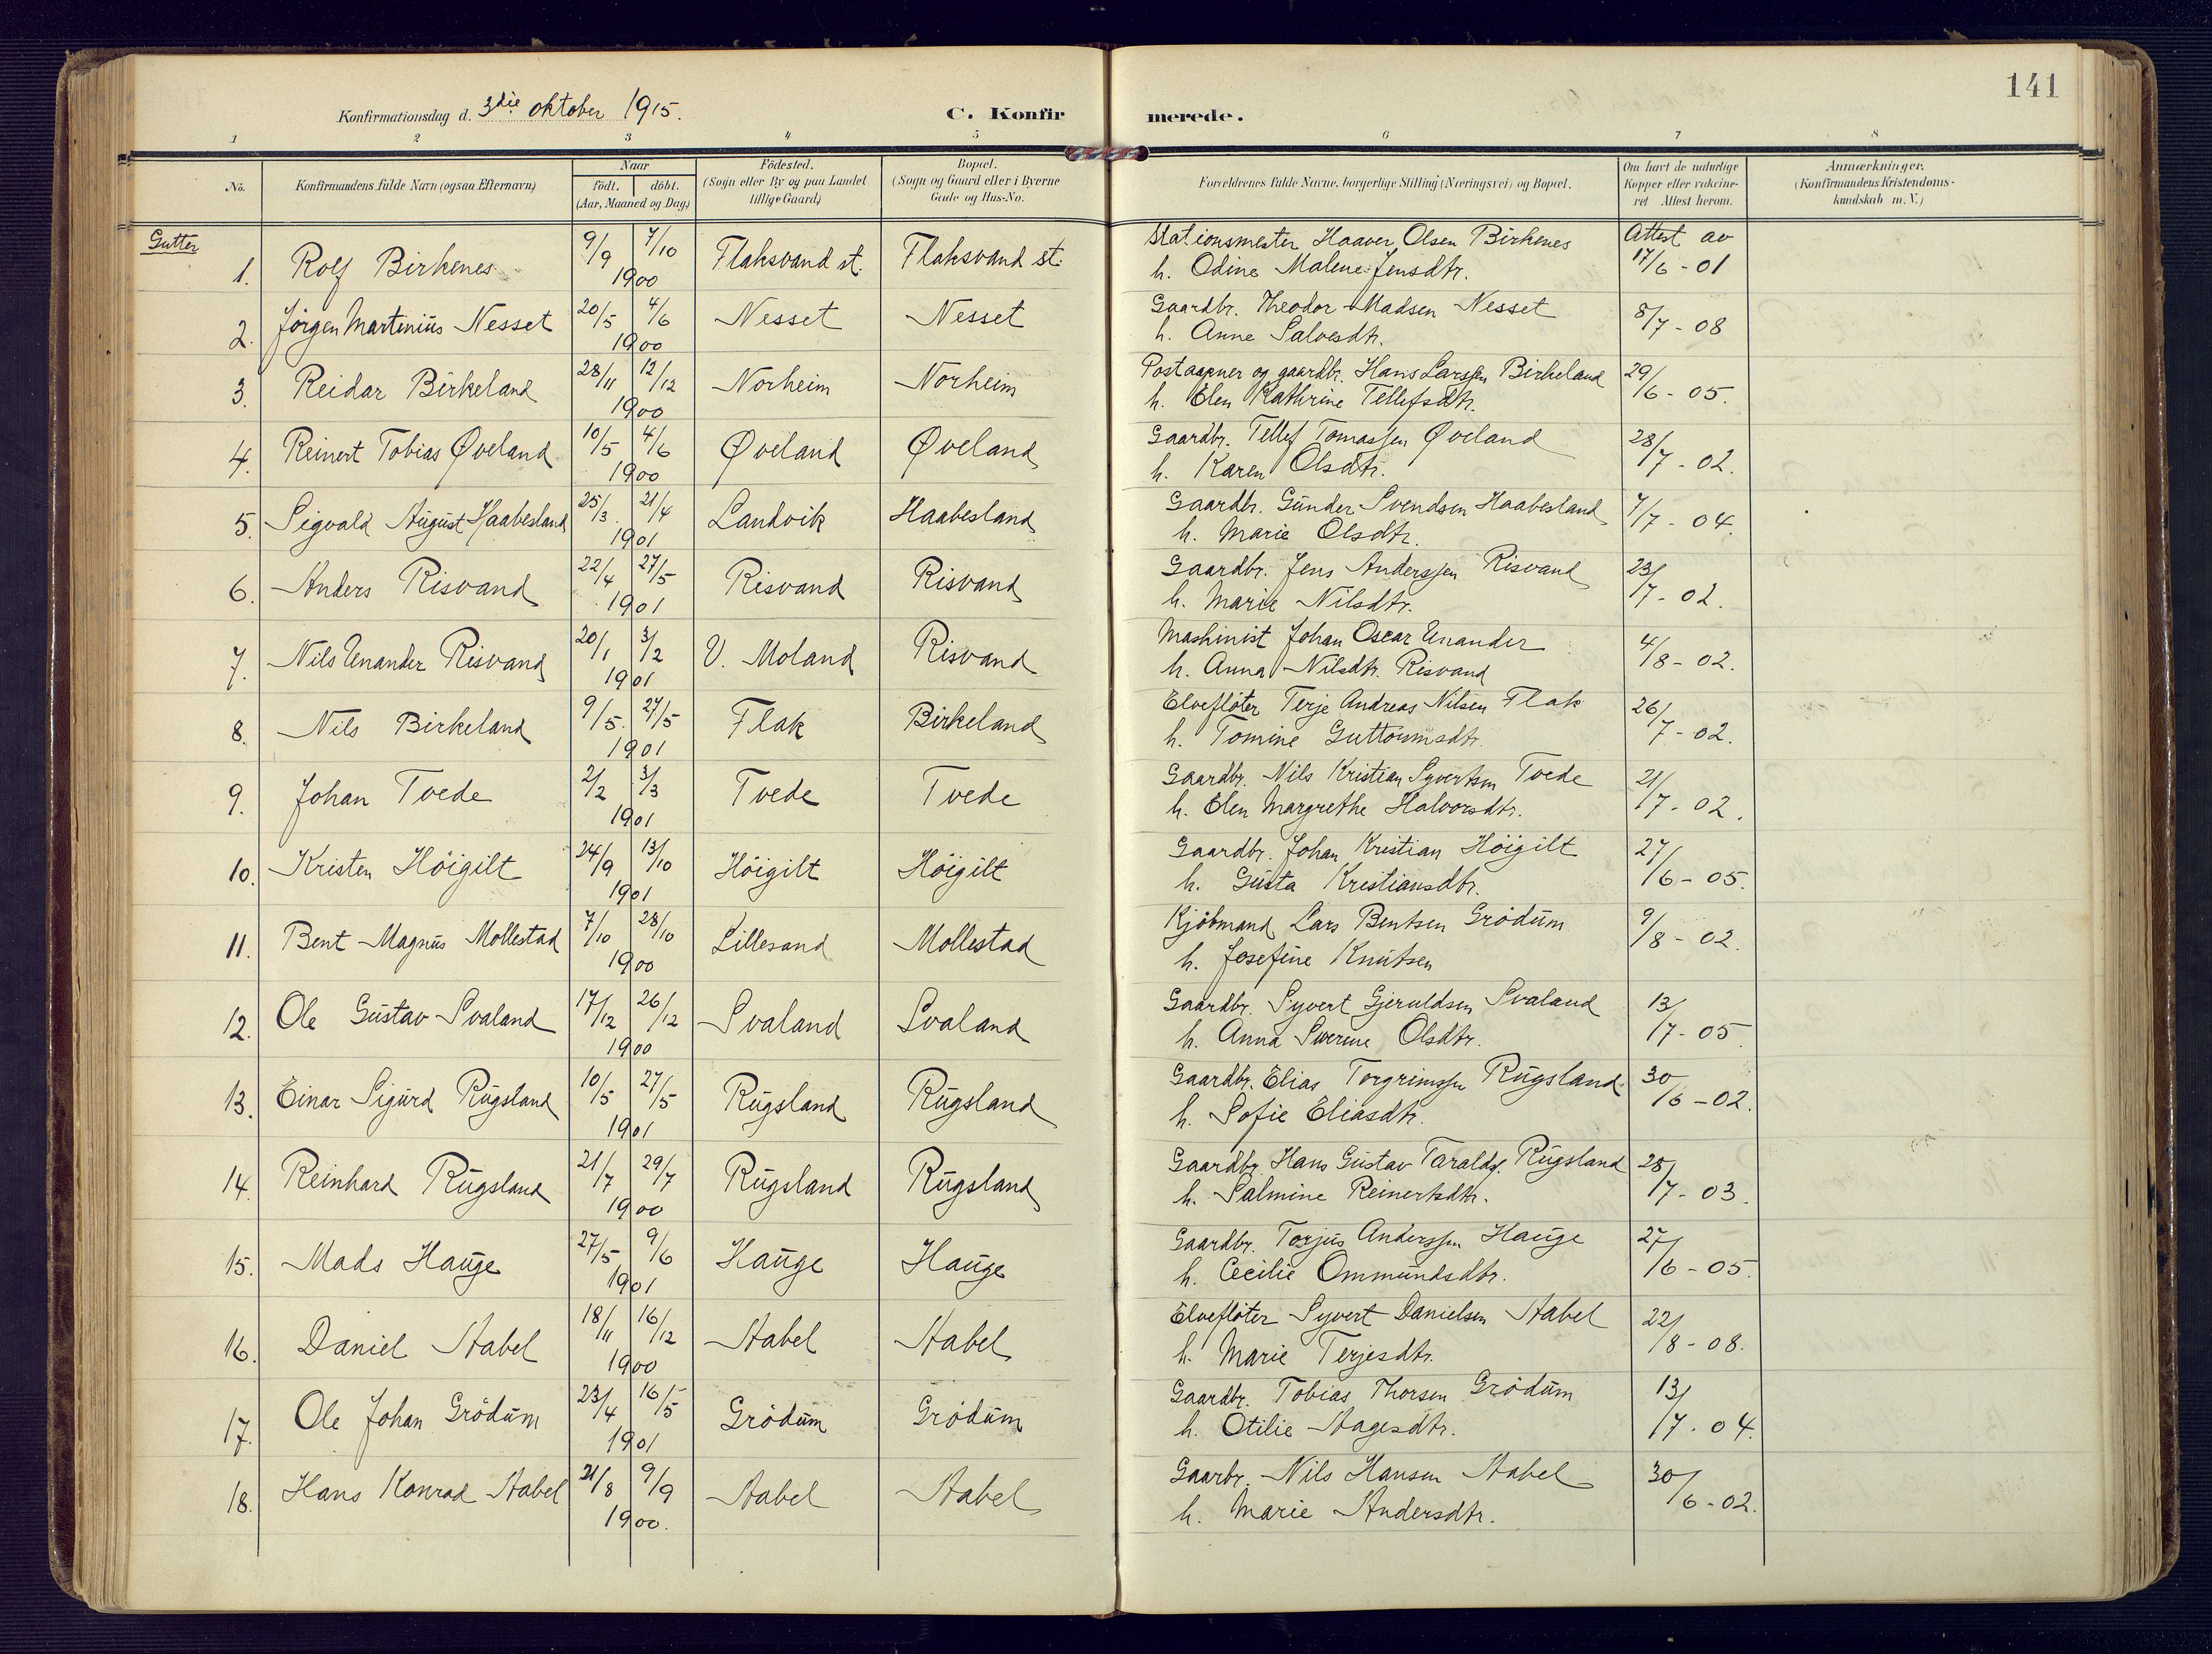 141
Konfirmationsdag d. 3die oktober 1915. C. Konfirmerede.
1 2 3 4 5 6 7 8
No. Konfirmandens fulde Navn (ogsaa Efternavn) Naar Födested. Bopæl. Forældrenes fulde Navne, borgerlige Stilling (Næringsvei) og Bopæl. Om havt de naturlige Anmærkninger,
födt. döbt. (Sogn eller By og paa Landet (Sogn og Gaard eller i Byerne Kopper eller vakcine- (Konfirmandens Kristendoms-
(Aar, Maaned og Dag) tillige Gaard) Gade og Hus-No. ret Attest herom. kundskab m. V.)
Gutter
1. Rolf Birkenes 9/9 7/10 1900 Flaksvand st. Flaksvand st. Stationsmester Haaver Olsen Birkenes Attest av
h. Odine Malene Jensdtr. 17/6 - 01
2. Jörgen Martinius Nesset 20/5 4/6 1900 Nesset Nesset Gaardbr. Theodor Madsen Nesset 8/7 - 08
h. Anne Salvesdtr.
3. Reidar Birkeland 28/11 12/12 1900 Norheim Norheim Postaapner og gaardbr. Hans Larssen Birkeland 29/6 - 05.
h. Elen Kathrine Tellefsdtr.
4. Reinert Tobias Øveland 10/5 4/6 1900 Øveland Øveland Gaardbr. Tellef Tomassen Øveland 28/7 - 02.
h. Karen Olsdtr.
5. Sigvald August Haabesland 25/3. 21/4 1901 Landvik Haabesland Gaardbr. Gunder Svendsen Haabesland 7/7 - 04.
h. Marie Olsdtr.
6. Anders Risvand 22/4 27/5 1901 Risvand Risvand Gaardbr. Jens Anderssen Risvand 23/7 - 02.
h. Marie Nilsdtr.
7. Nils Enander Risvand 20/1 3/2 1901 V. Moland Risvand Mashinist Johan Oscar Enander 4/8 - 02.
h. Anna Nilsdtr. Risvand
8. Nils Birkeland 9/5. 27/5 1901 Flak Birkeland Elveflöter Terje Andreas Nilsen Flak 26/7 - 02.
h. Tomine Guttormsdtr.
9. Johan Tvede 2/2 3/3 1901 Tvede Tvede Gaardbr. Nils Kristian Syvertsen Tvede 21/7 - 02.
h. Elen Margrethe Halvorsdtr.
10. Kristen Höigilt 24/9 13/10 1901 Höigilt Höigilt Gaardbr. Johan Kristian Höigilt 27/6 - 05.
h. Gusta Kristiansdtr.
11. Bent Magnus Mollestad 7/10 28/10 1900 Lillesand Mollestad Kjöbmand Lars Bentsen Grödum 9/8 - 02.
h. Josefine Knutsen
12. Ole Gustav Svaland 17/12 26/12 1900 Svaland Svaland Gaardbr. Syvert Gjeruldsen Svaland 13/7 - 05.
h. Anna Severine Olsdtr.
13. Einar Sigurd Rugsland 10/5 27/5 1901 Rugsland Rugsland Gaardbr. Elias Torgrimssen Rugsland 30/6 - 02.
h. Sofie Eliasdtr.
14. Reinhard Rugsland 21/7 29/7 1900 Rugsland Rugsland Gaardbr. Hans Gustav Taralds. Rugsland 28/7 - 03.
h. Salmine Reinertsdtr.
15. Mads Hauge 27/5 9/6 1901 Hauge Hauge Gaardbr. Torjus Anderssen Hauge 27/6 - 05.
h. Cecilie Ommundsdtr.
16. Daniel Stabel 18/11 16/12 1900 Stabel Stabel Elveflöter Syvert Danielsen Stabel 22/8 - 08.
h. Marie Terjesdtr.
17. Ole Johan Grödum 23/4 16/5 1901 Grödum Grödum Gaardbr. Tobias Thorsen Grödum 13/7. 04.
h. Otilie Aagesdtr.
18. Hans Konrad Stabel 21/8 9/9 1900. Stabel Stabel Gaarbr. Nils Hansen Stabel 30/6 - 02.
h. Marie Andersdtr.